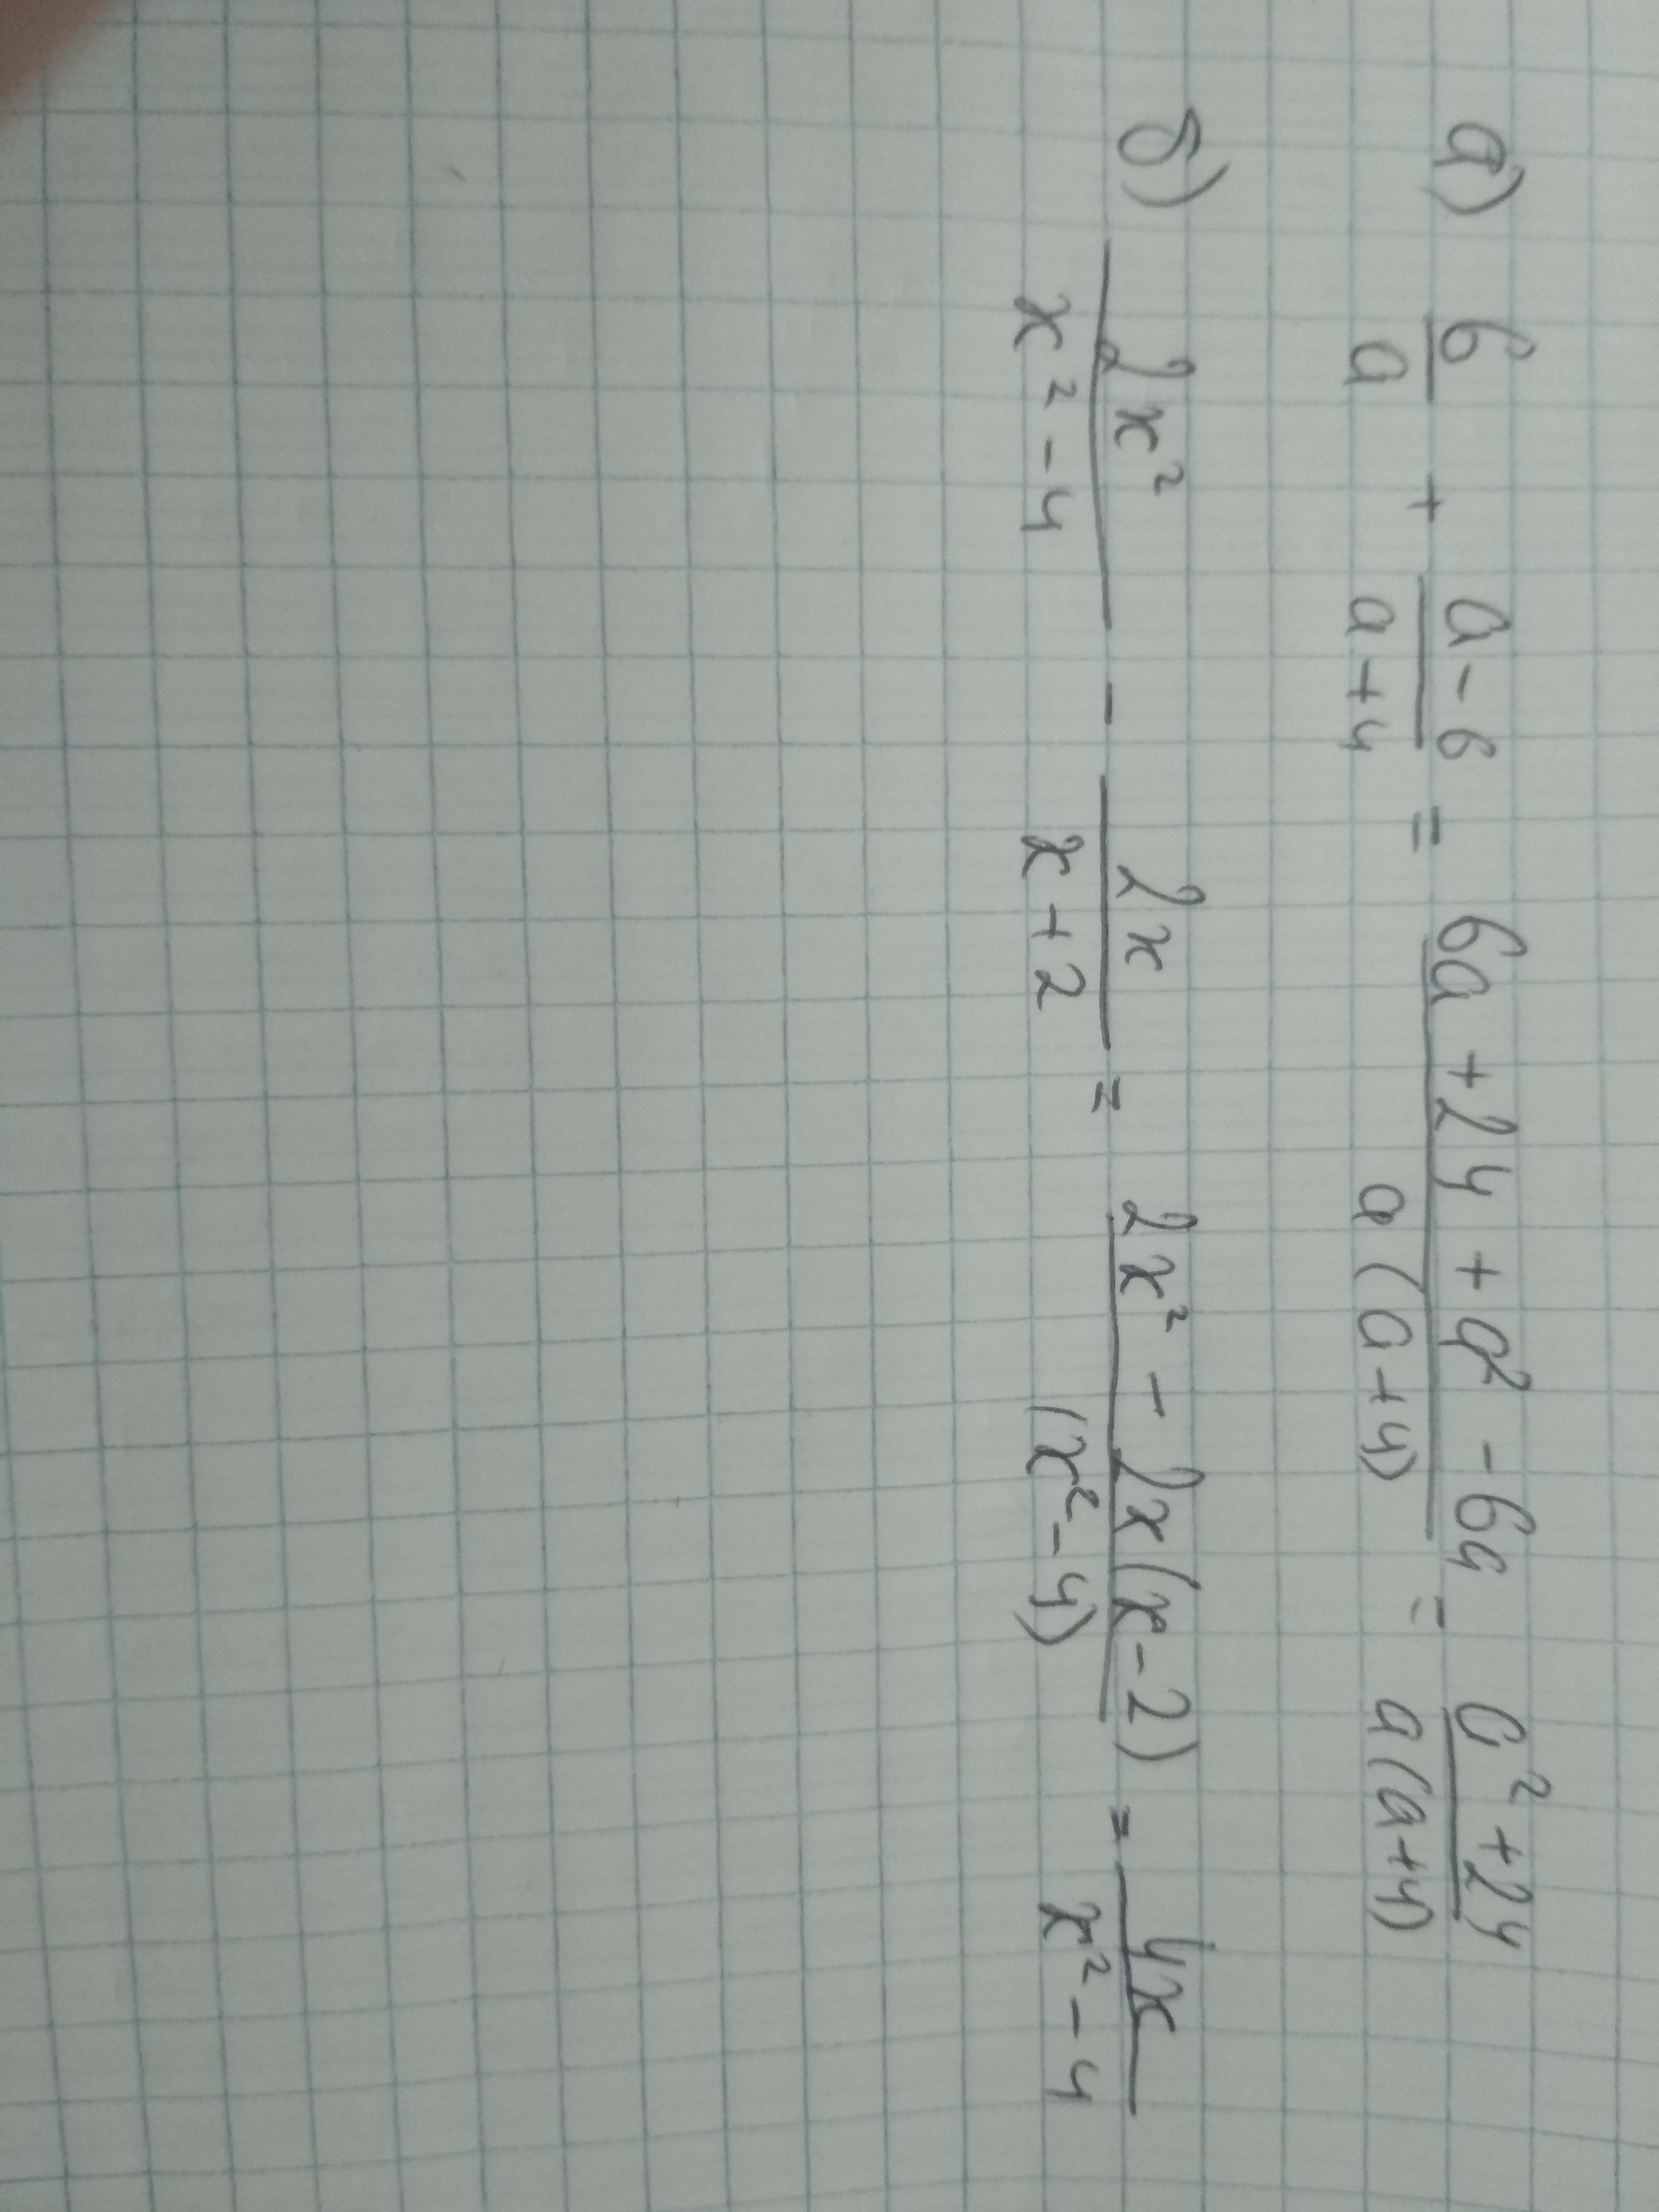 а) 6/a + (a-6)/(a+4) = (6a+24+a²-6a)/(a(a+4)) = (a²+24)/(a(a+4))
б) 2x²/(x²-4) - 2x/(x+2) = (2x²-2x(x-2))/((x²-4)) = 4x/(x²-4)